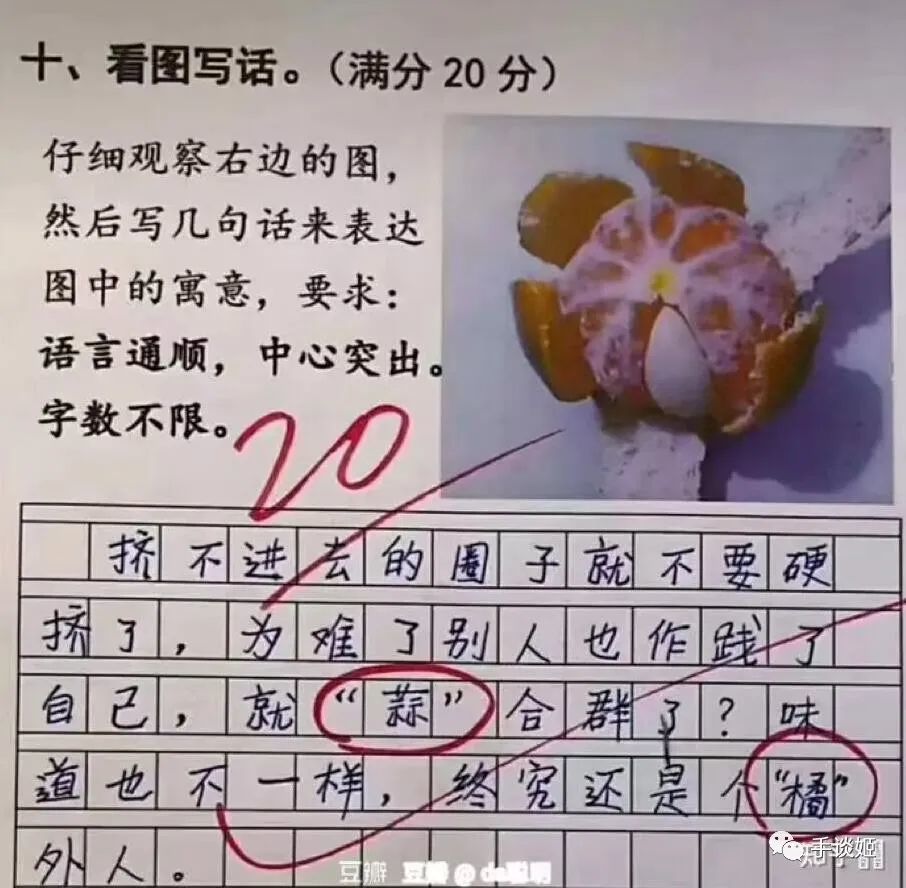 十、看图写话。（满分 20 分）
仔细观察右边的图，
然后写几句话来表达
图中的寓意，要求：
语言通顺，中心突出。
字数不限。
20
挤不进去的圈子就不要硬
挤了，为难了别人也作践了
自己，就“蒜”合群了？味
道也不一样，终究还是个“橘”
外人。
豆瓣 豆瓣@da聪明
手谈姬